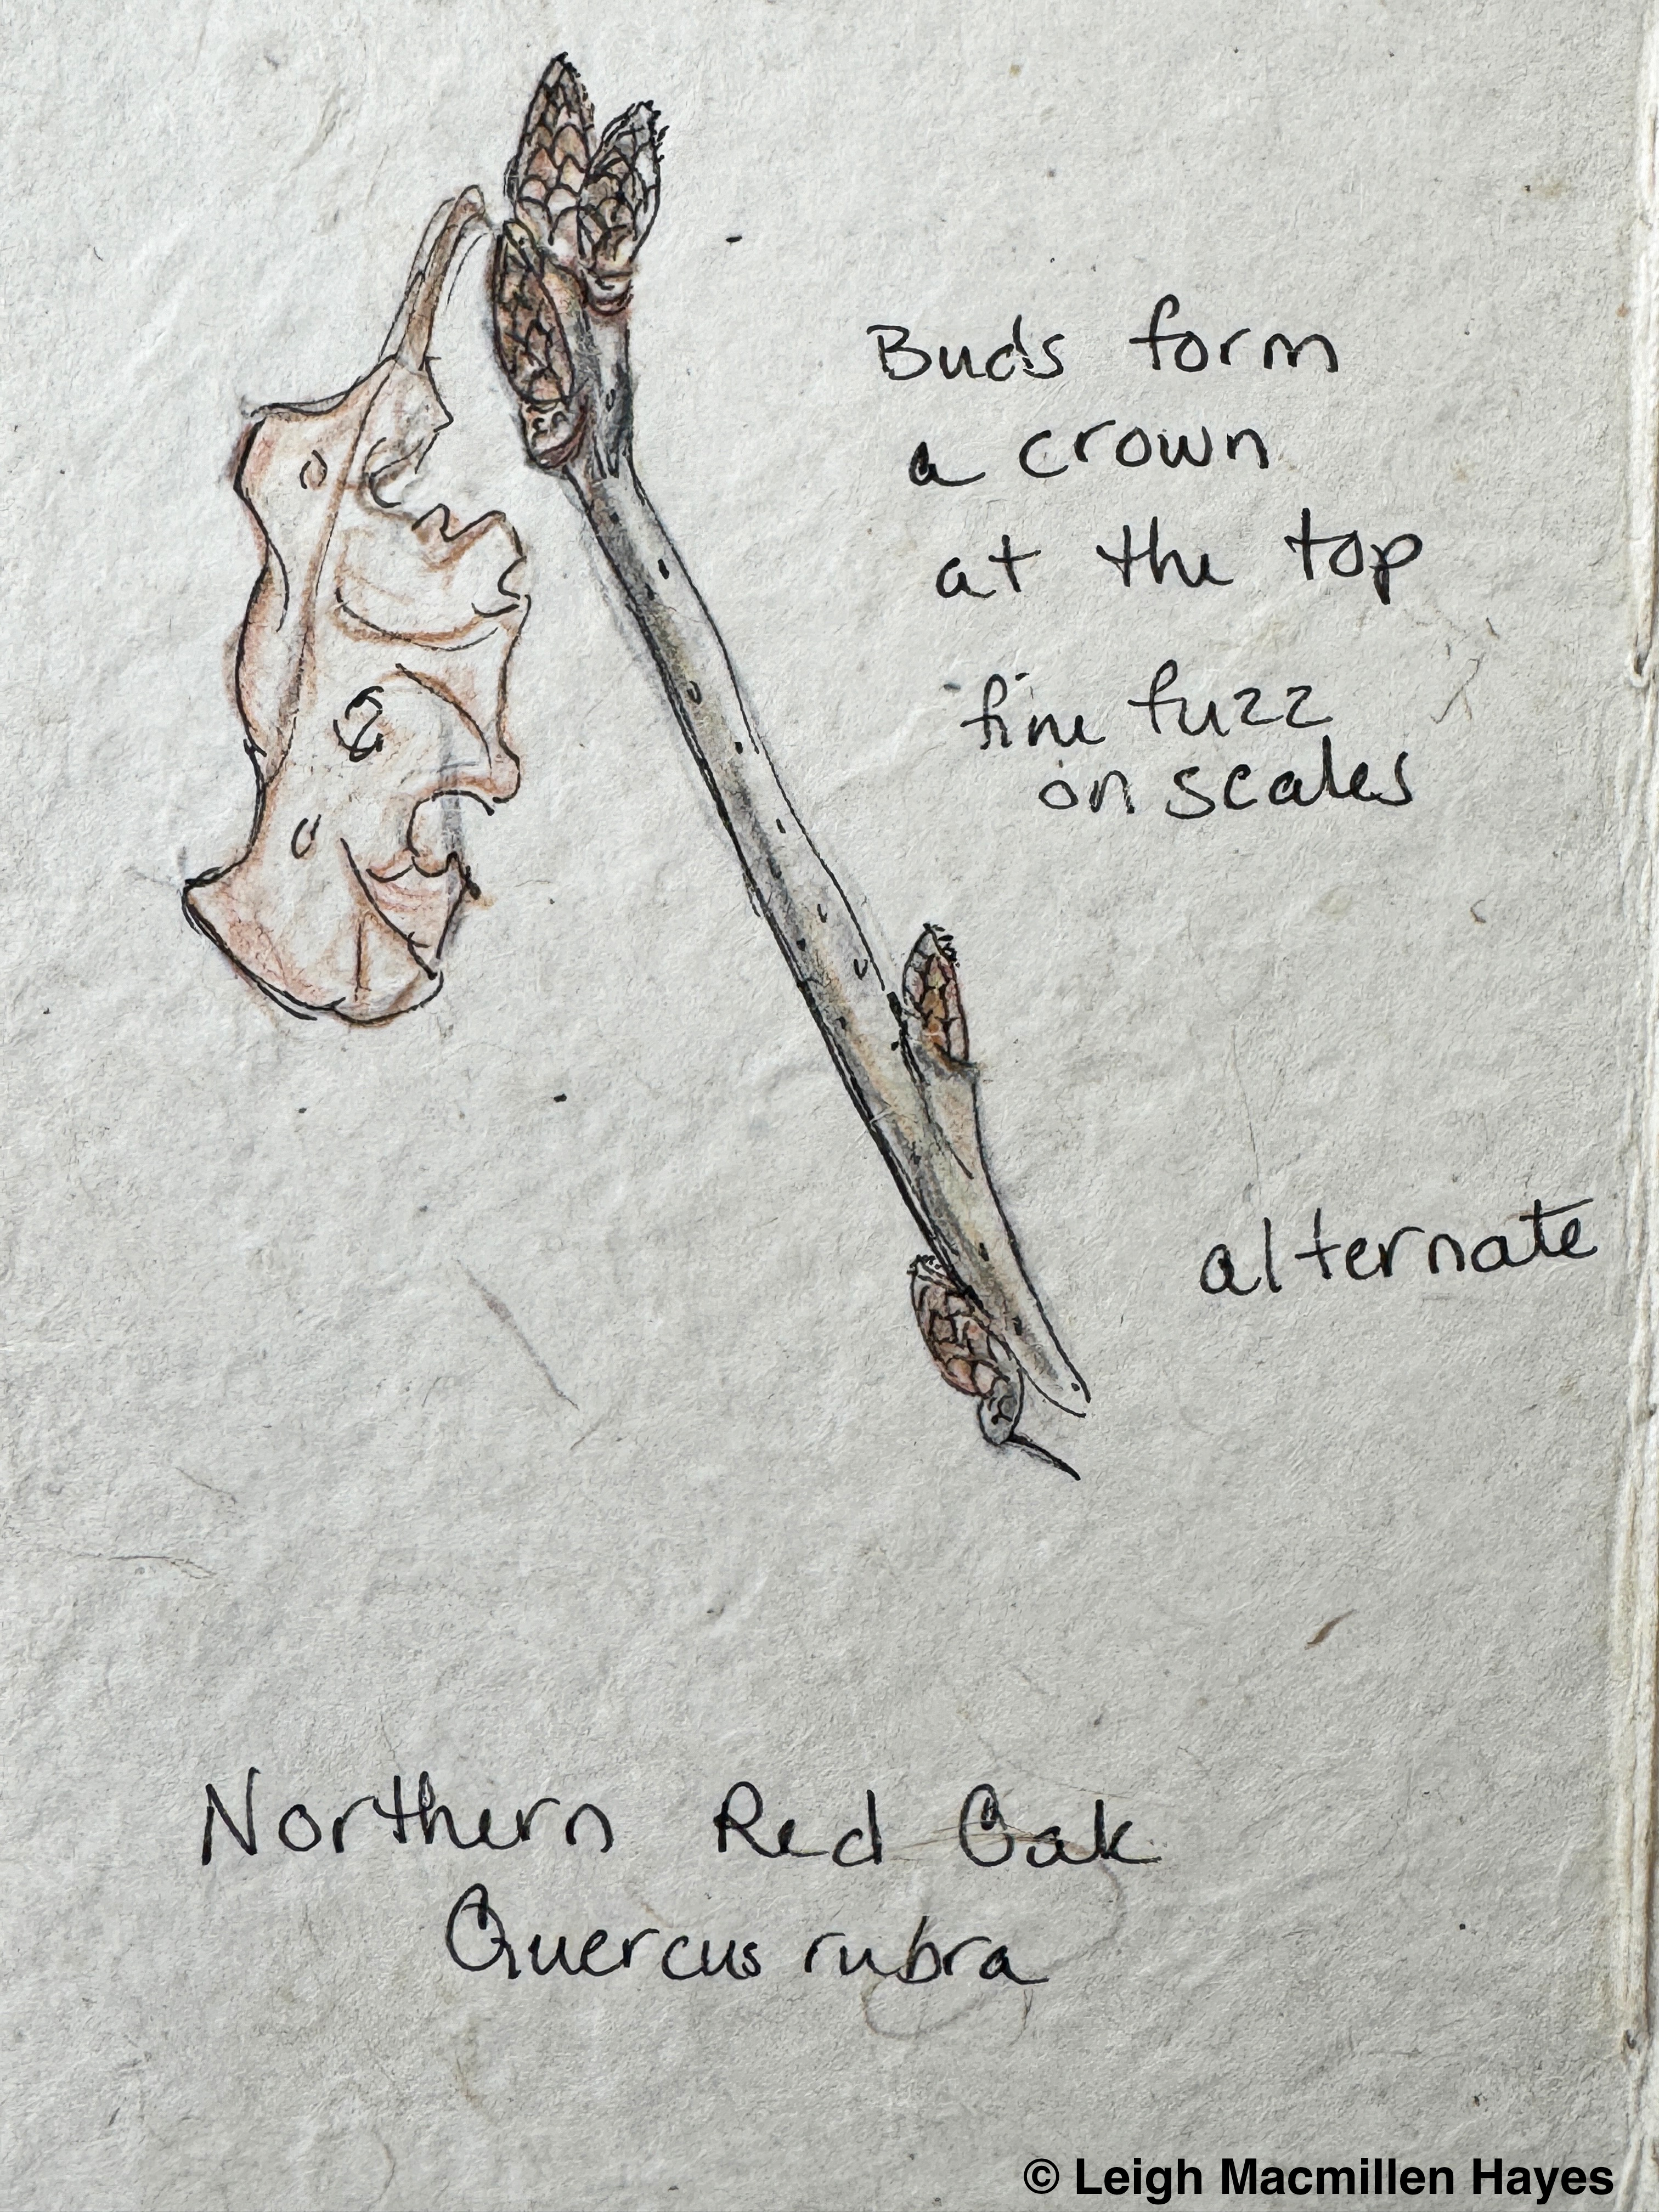 Buds form
a crown
at the top
fine fuzz
on scales
alternate
Northern Red Oak
Quercus rubra
© Leigh Macmillen Hayes